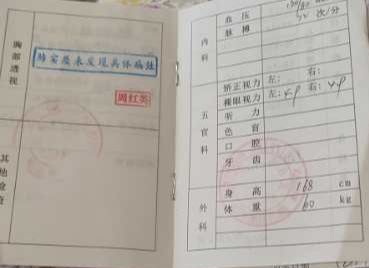 胸部透视
肺实质未发现具体病灶
周红英
其他检查
内科
血压
脉搏 72 次/分
五官科
矫正视力 左: 右:
裸眼视力 左: 4.9 右: 4.9
听力
色盲
口腔
牙齿
外科
身高 168 cm
体重 60 kg